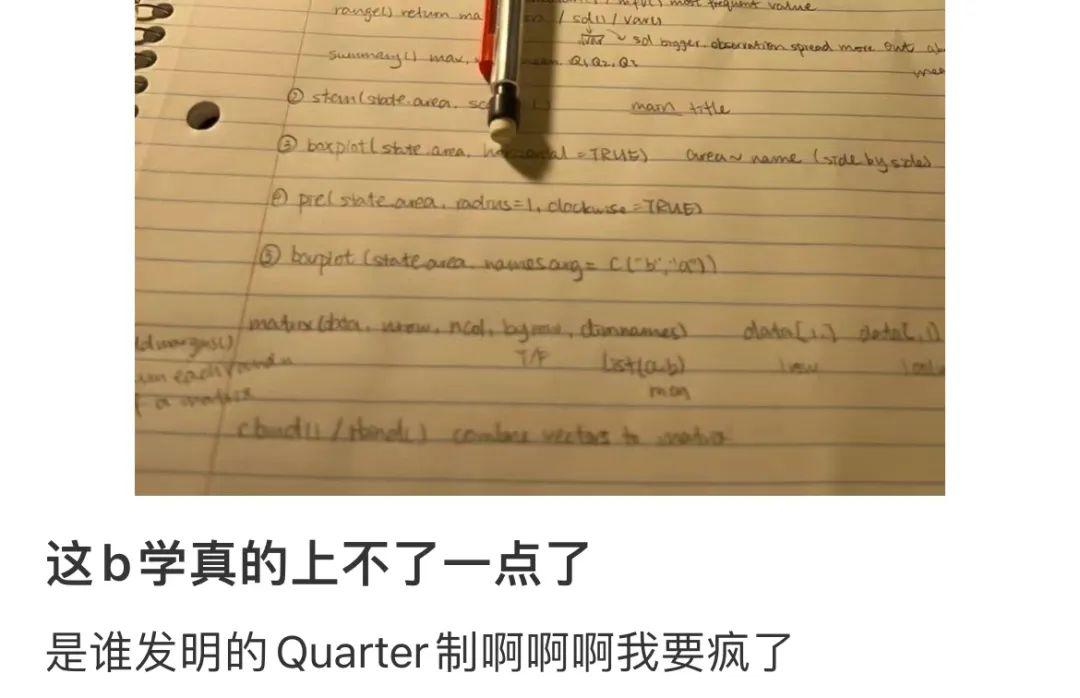 most frequent value
range() return / sd() / var()
√var → sd bigger, observation spread more out
summary() max, Q1, Q2, Q3
② stem(state.area, main title
③ boxplot(state.area, horizontal = TRUE) area~ name (side by side)
④ pie(state.area, radius=1, clockwise=TRUE)
⑤ barplot (state.area, names.arg= C("b","a"))
matrix(data, nrow, ncol, byrow, dimnames) data[1,] data[,1]
T/F list(a,b)
each
a matrix
cbind() / rbind() combine vectors to matrix
这b学真的上不了一点了
是谁发明的Quarter制啊啊啊我要疯了